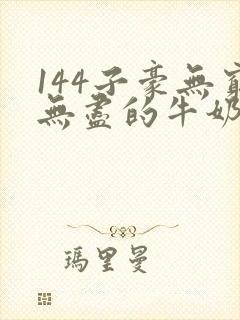 144子豪無窮
無盡的牛奶
瑪里曼